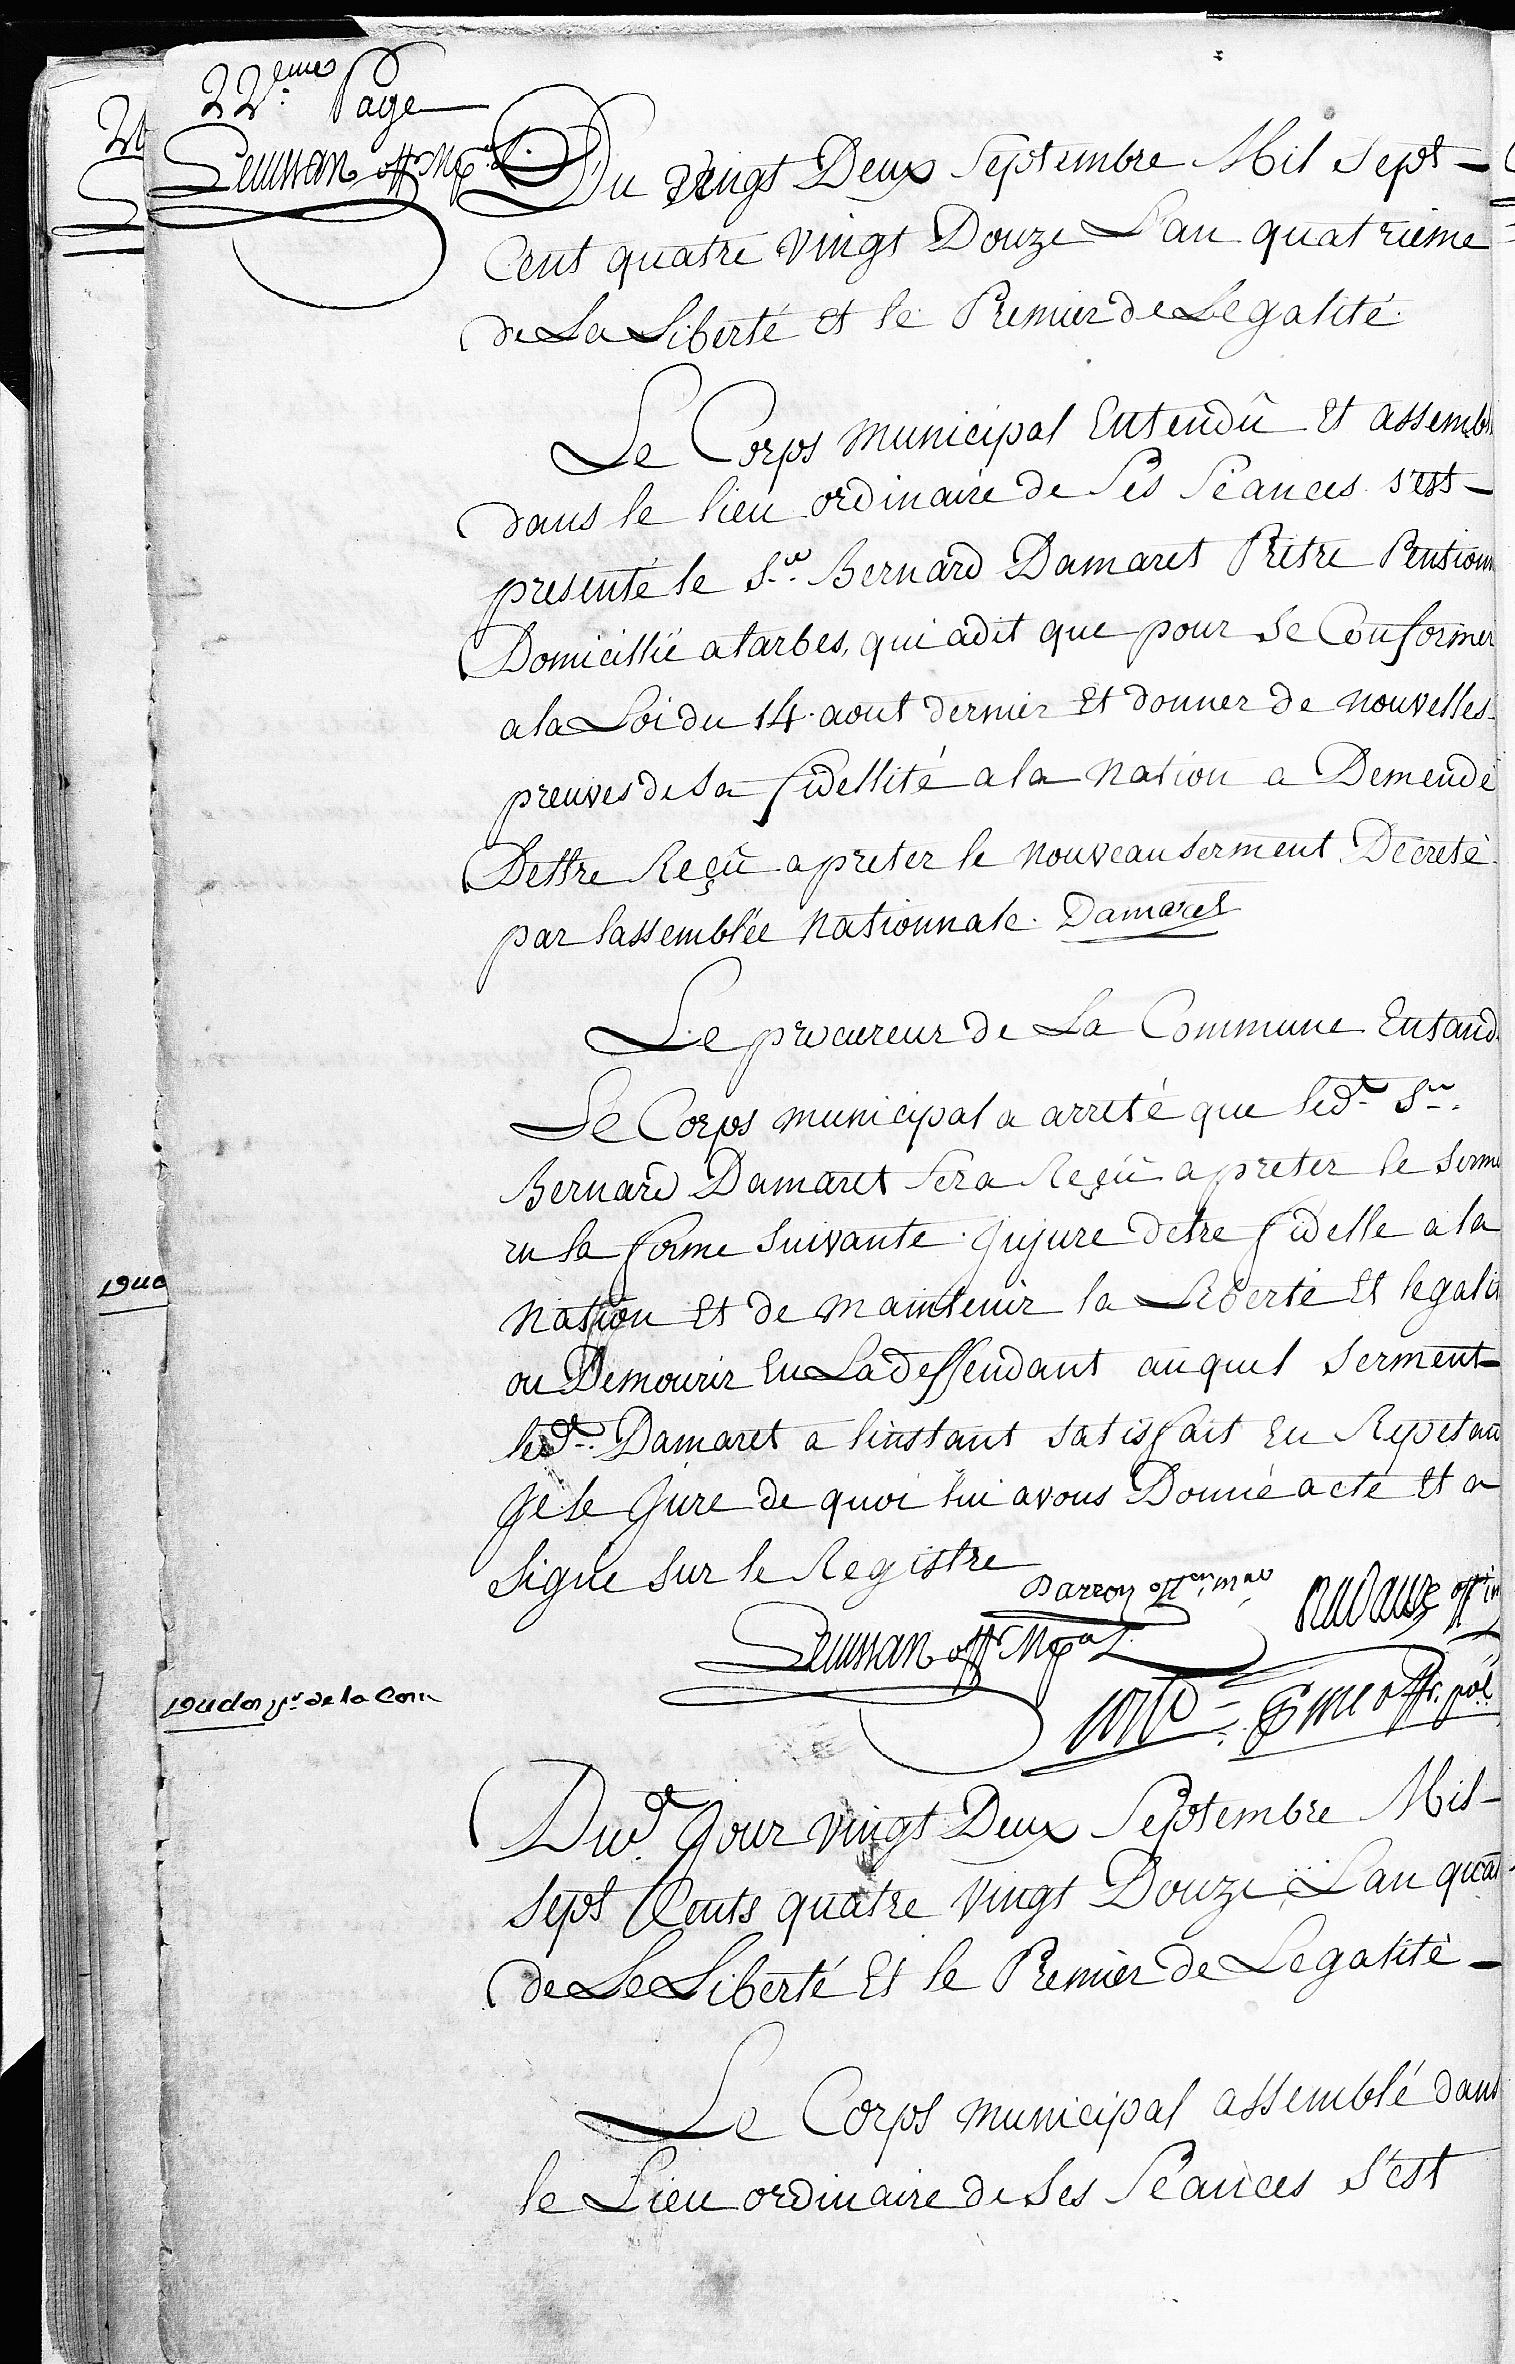 22.eme Page
Du vingt Deux Septembre Mil Sept
Cent quatre vingt Douze L'an quatrieme
de La Liberté et le Premier de Legalité.
Le Corps municipal Entendû et assemb
dans le lieu ordinaire de Ses Séances s'est
presenté le S.r Bernard Damaret Prêtre Pension
Domicillié a tarbes, qui a dit que pour Se Conformer
a la Loi du 14. aout dernier et donner de nouvelles
preuves de Sa fidellité a la Nation a Demendé
Dettre Reçû a preter le nouveau serment Decreté
par lassemblée Nationnale. Damaret
Le procureur de La Commune Entand
Le Corps municipal a arreté que led.t S.r
Bernard Damaret Sera Reçû a preter le serme
en la forme Suivante. Je jure detre fidelle a la
Nation et de maintenir la Liberté et legali
ou De mourir En La deffendant auquel Serment
led.t Damaret a linstant satisfait En Repetan
Je le Jure de quoi lui avons Donné acte et a
Signé Sur le Registre
Darroy off.er m.al
Dudit Jour vingt Deux Septembre Mil
Sept Cents quatre vingt Douze, L'an quat
de Le Liberté Et le Premier de Legalité
Le Corps municipal assemblé dans
le Lieu ordinaire de Ses Séances S'est